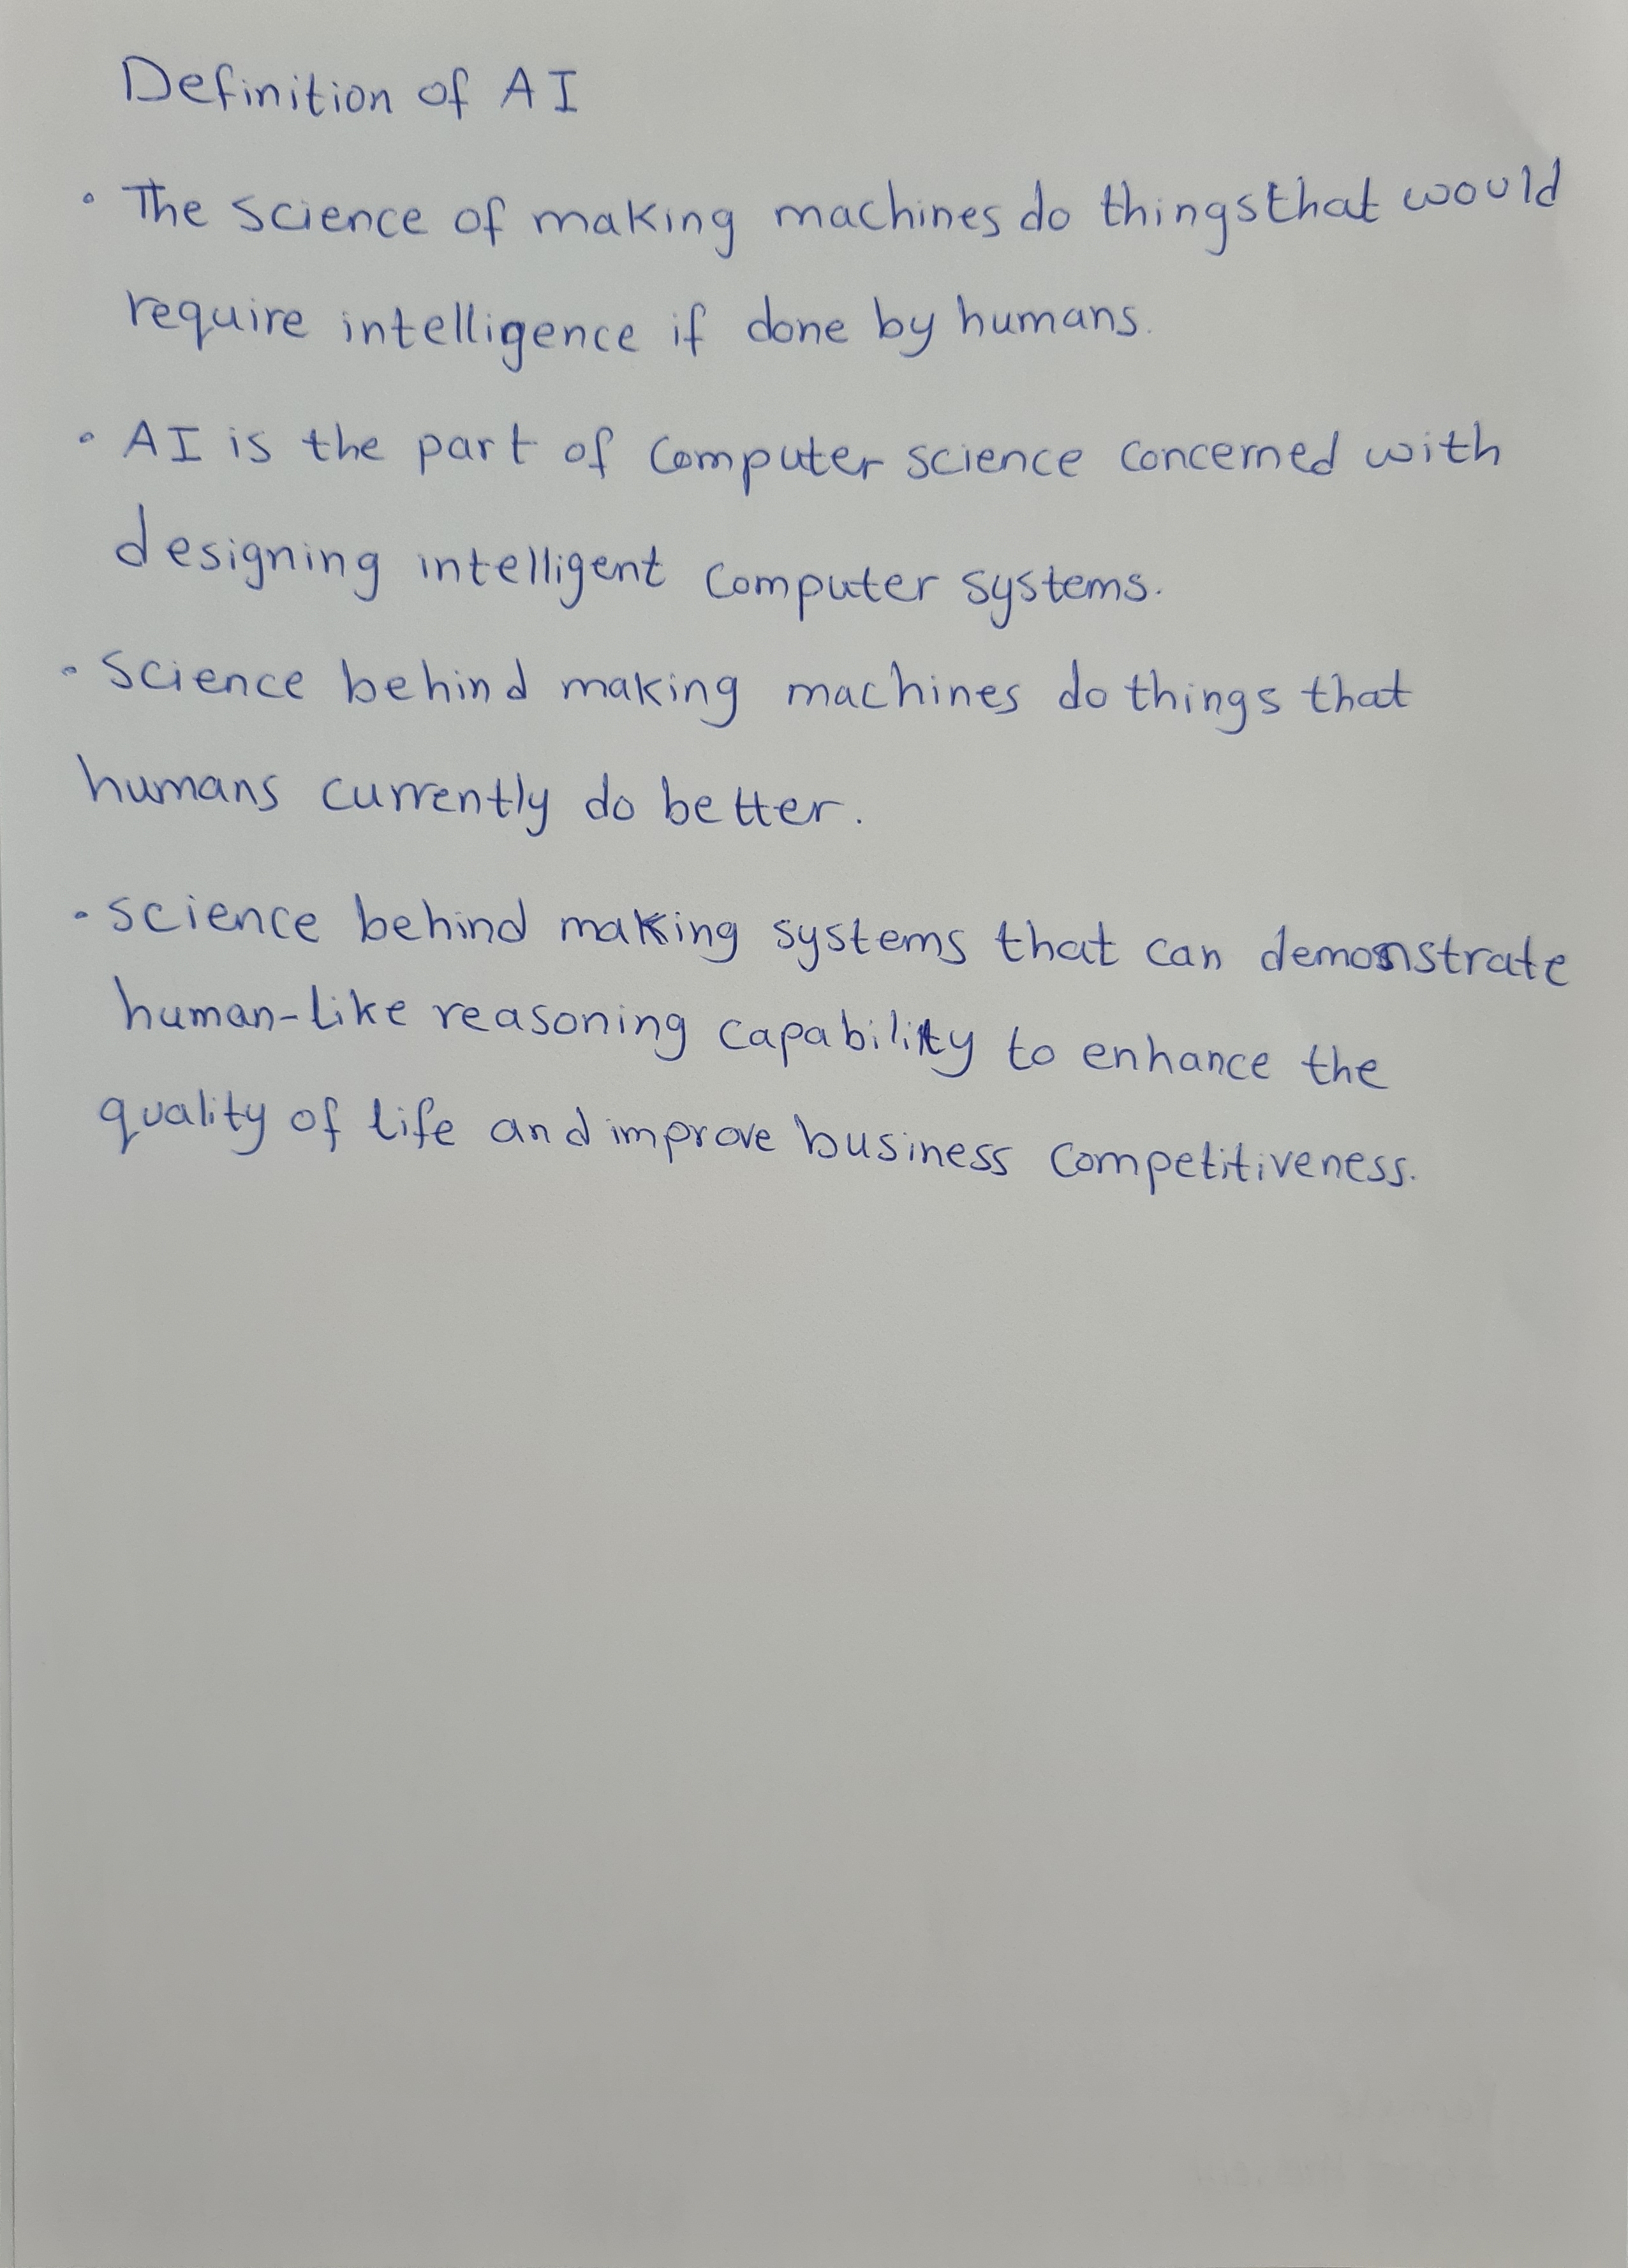 Definition of AI
• The science of making machines do things that would
require intelligence if done by humans.
• AI is the part of computer science concerned with
designing intelligent computer systems.
• Science behind making machines do things that
humans currently do better.
• science behind making systems that can demonstrate
human-like reasoning capability to enhance the
quality of life and improve business competitiveness.